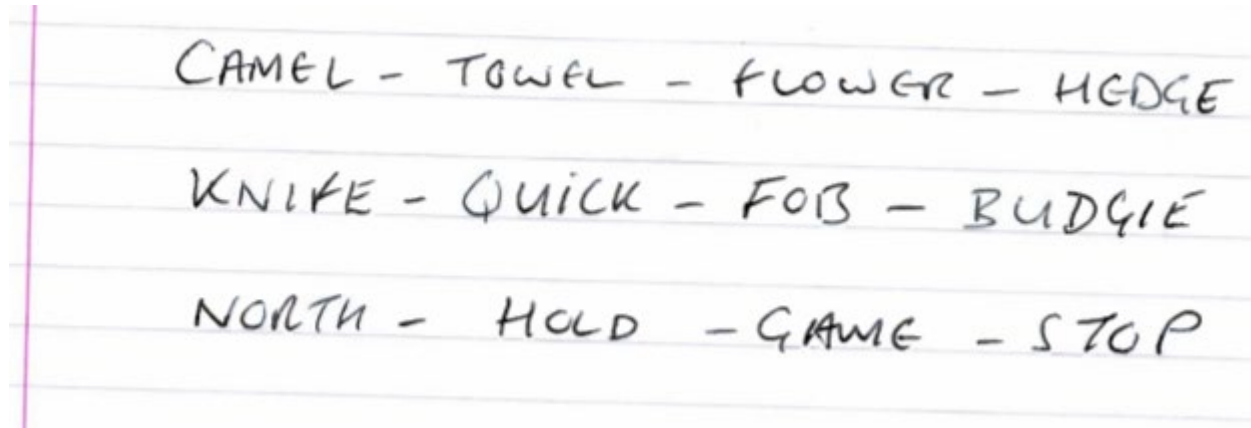 CAMEL - TOWEL - FLOWER - HEDGE
KNIFE - QUICK - FOB - BUDGIE
NORTH - HOLD - GAME - STOP